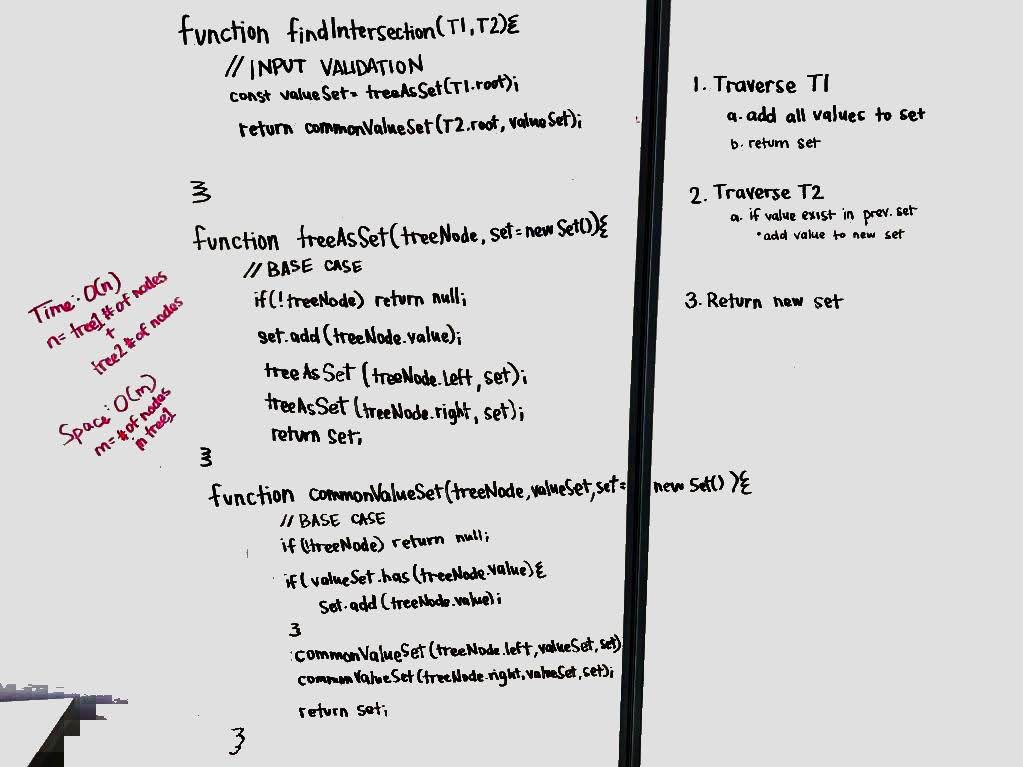 function findIntersection(T1,T2){
// INPUT VALIDATION
const valueSet= treeAsSet(T1.root);
return commonValueSet(T2.root, valueSet);
}
function treeAsSet(treeNode, set=new Set()){
// BASE CASE
if(!treeNode) return null;
set.add(treeNode.value);
treeAsSet(treeNode.left, set);
treeAsSet(treeNode.right, set);
return set;
}
function commonValueSet(treeNode,valueSet,set= new Set()){
// BASE CASE
if(!treeNode) return null;
if(valueSet.has(treeNode.value){
Set.add(treeNode.value);
}
commonValueSet(treeNode.left,valueSet,set)
commonValueSet(treeNode.right,valueSet,set);
return set;
}
Time: O(n)
n= tree1 # of nodes
+
tree2 # of nodes
Space: O(m)
m= # of nodes
in tree1
1. Traverse T1
a. add all values to set
b. return set
2. Traverse T2
a. if value exist in prev. set
• add value to new set
3. Return new set